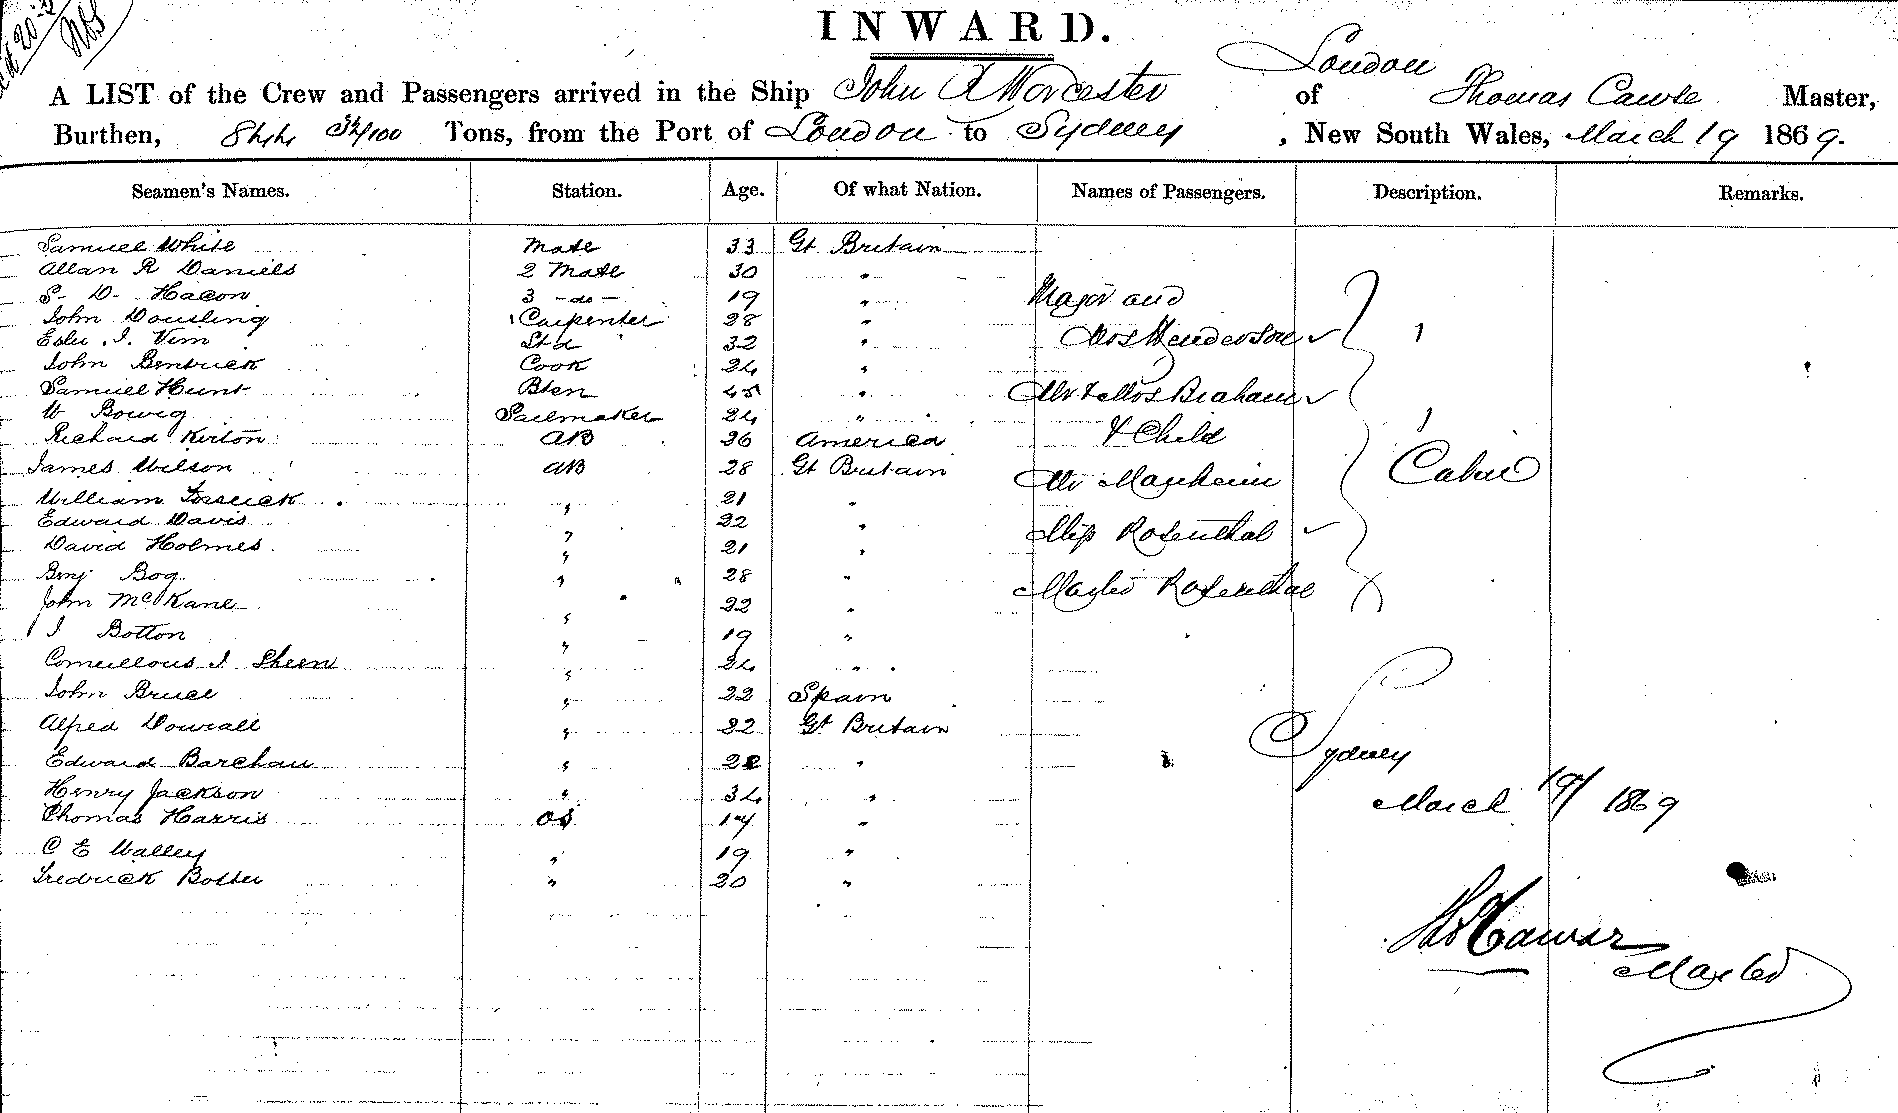 INWARD.
London
A LIST of the Crew and Passengers arrived in the Ship John R Worcester of Thomas Cawse Master,
Burthen, 844 34/100 Tons, from the Port of London to Sydney, New South Wales, March 19 1869.
Seamen's Names. Station. Age. Of what Nation. Names of Passengers. Description. Remarks.
Samuel White Mate 33 Gt Britain
Allan R Daniels 2 Mate 30 "
S. D. Hacon 3 -do- 19 " Major and
John Dousling Carpenter 28 "
32 " Mrs Henderson
John Cook 24 "
Samuel Hunt 45 " Mr & Mrs Braham
W Sailmaker 24 "
Richard Kirton AB 26 America & Child
James Wilson AB 28 Gt Britain Mr Manheim Cabin
William " 21 "
Edward Davis " 22 " Miss Rosenthal
David Holmes " 21 "
Benj Bog " 28 " Master Rosenthal
John McKane " 22 "
J Botton " 19 "
J Sheen " 24 "
John Bruce " 22 Spain
Alfred " 22 Gt Britain Sydney
Edward " 22 "
Henry Jackson " 34 " March 19/ 1869
Thomas Harris OS 17 "
C E Walley " 19 "
Fredrick " 20 "
Thos Cawse
Master